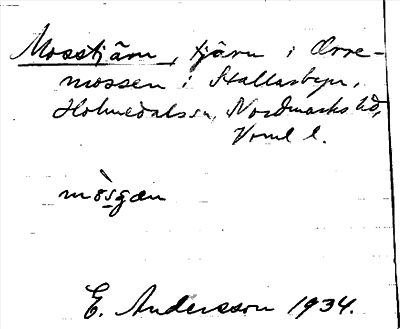 Mosstjärn, tjärn i Orre-
mossen i Stallarbyn,
Holmedals sn, Nordmarks hd,
Vrml l.
mòsgæn
E. Andersson 1934.